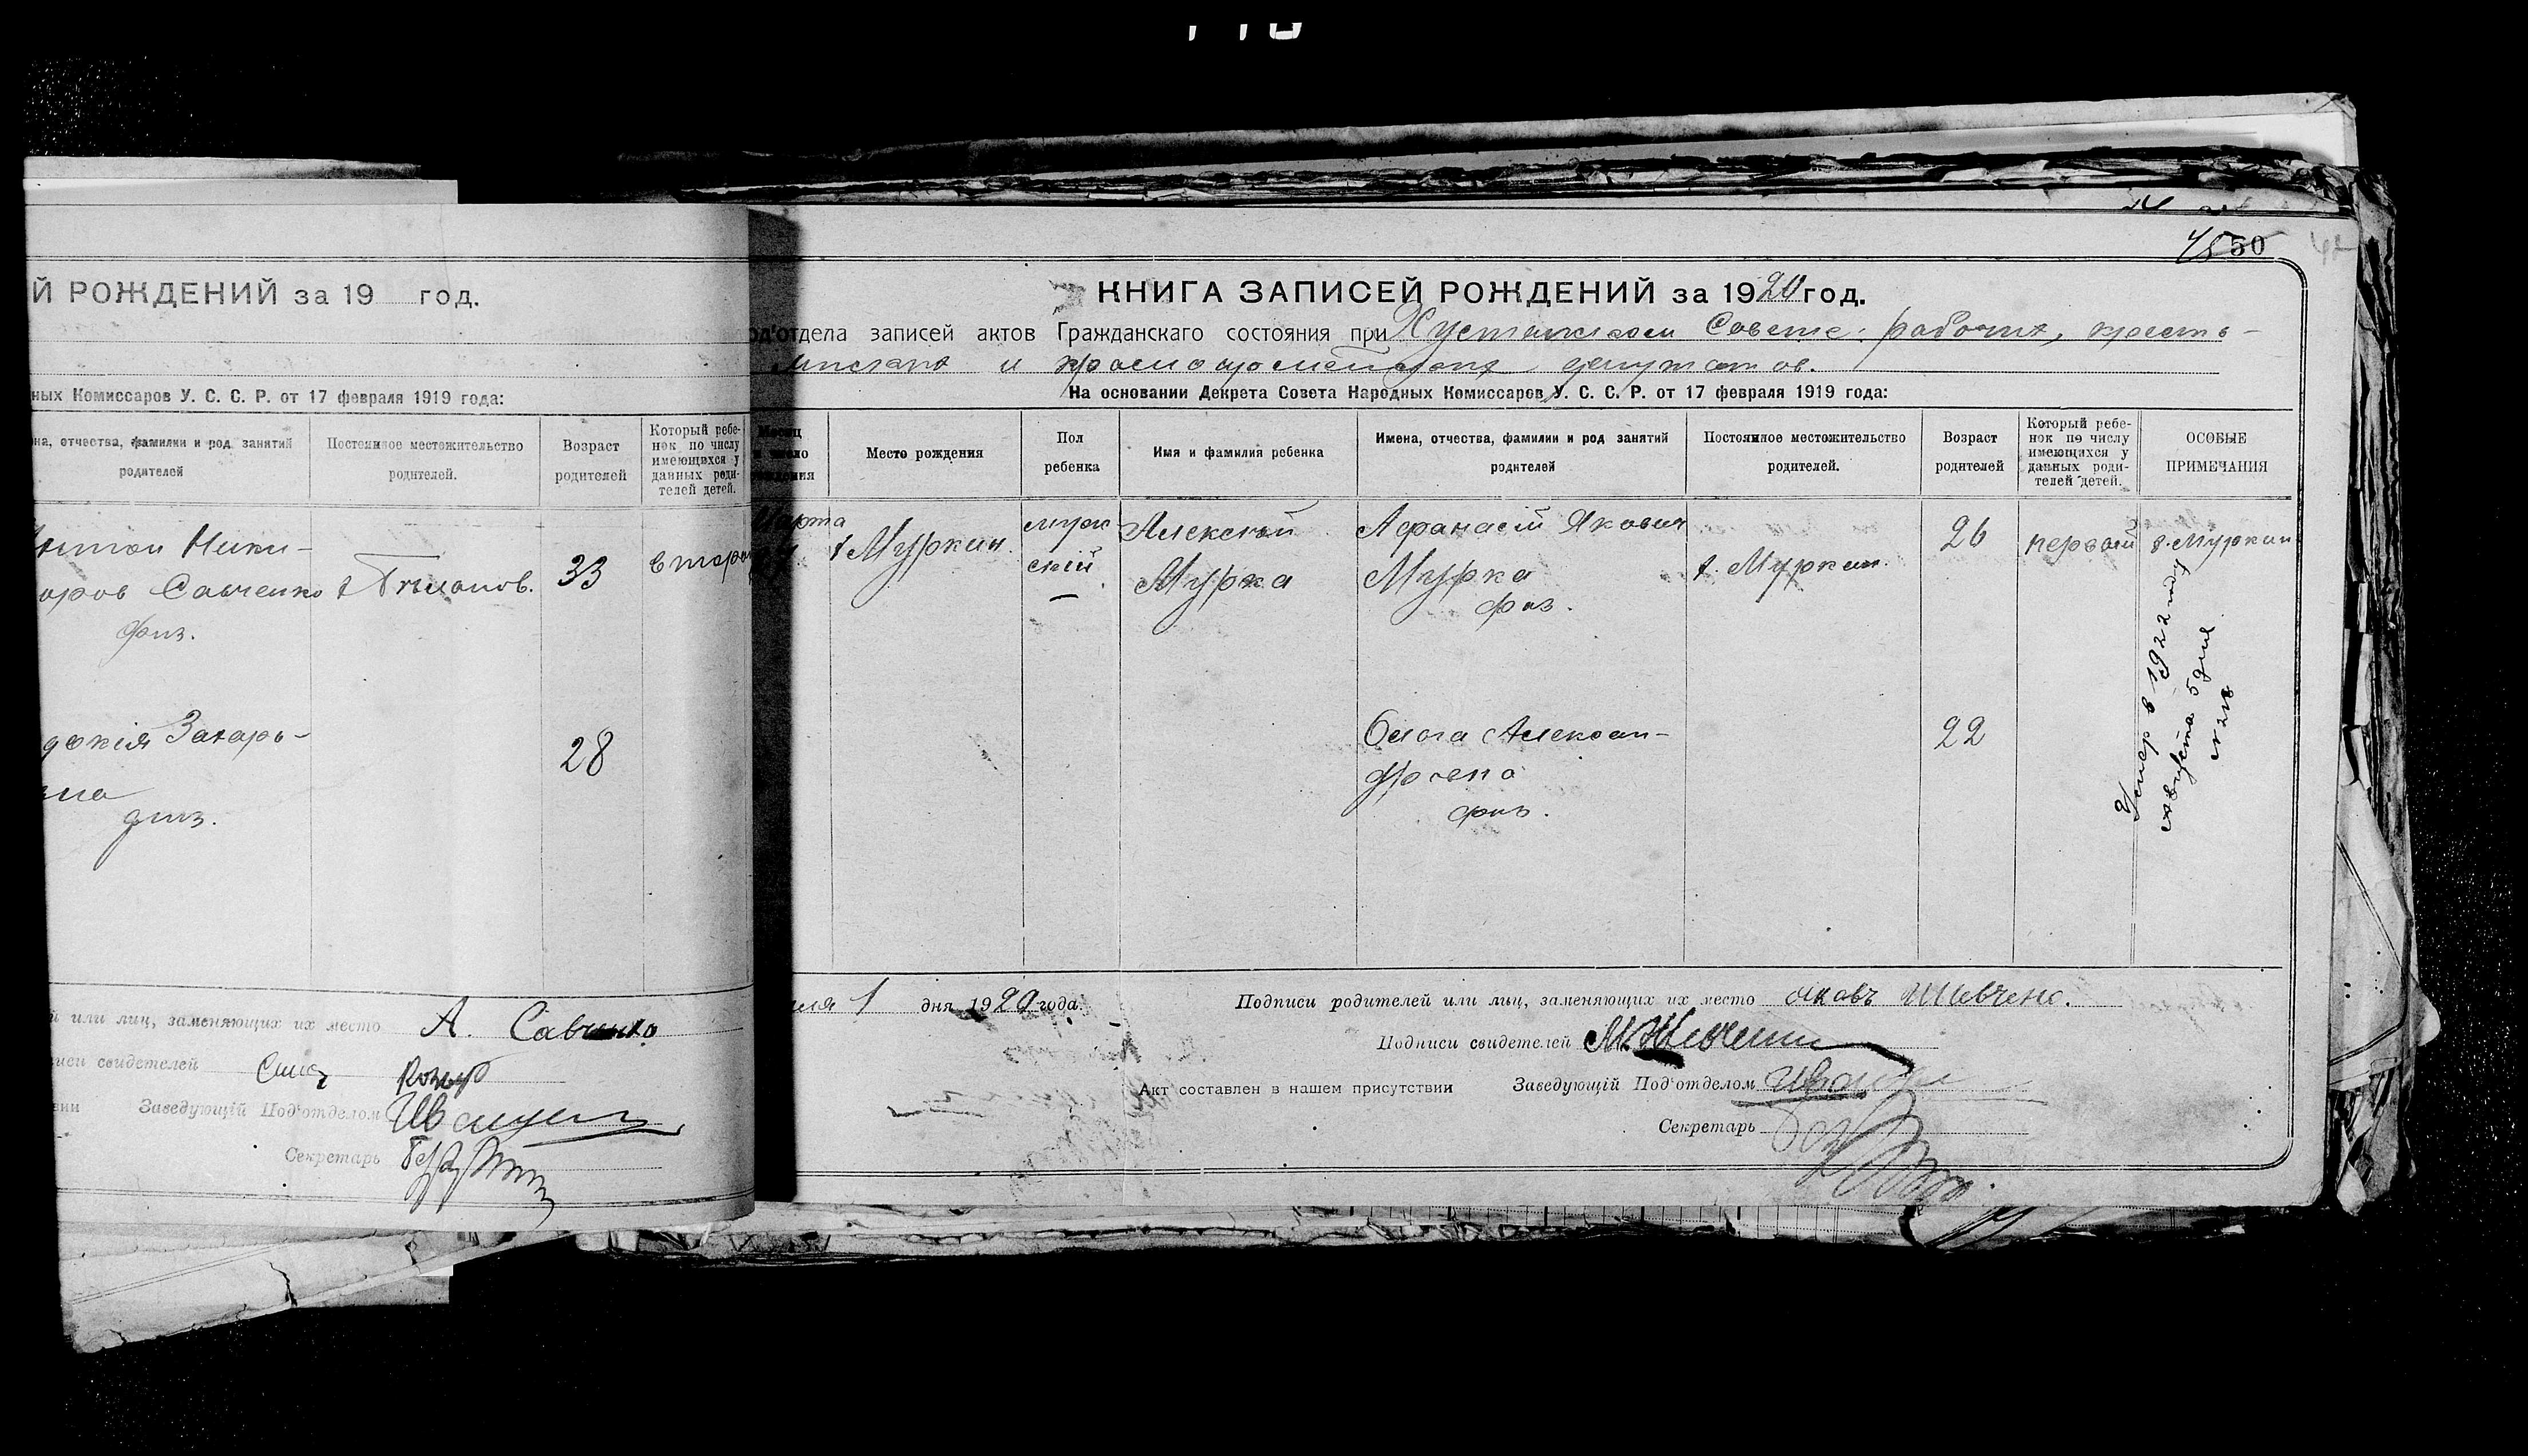 50
Й РОЖДЕНИЙ за 19 год.
ных Комиссаров У. С. С. Р. от 17 февраля 1919 года:
на, отчества, фамилии и род занятий родителей
Постоянное местожительство родителей.
Возраст родителей
Который ребенок по числу имеющихся у данных родителей детей.
Ники-
оров Савченко
физ.
33
Захарь-
28
физ.
й или лиц, заменяющих их место А. Савченко
иси свидетелей
вии Заведующій Под'отделом
Секретарь
КНИГА ЗАПИСЕЙ РОЖДЕНИЙ за 1920 год.
од'отдела записей актов Гражданскаго состояния при Совете рабочих, кресть-
и депутатов.
На основании Декрета Совета Народных Комиссаров У. С. С. Р. от 17 февраля 1919 года:
Месяц и число рождения
Место рождения
Пол ребенка
Имя и фамилия ребенка
Имена, отчества, фамилии и род занятий родителей
Постоянное местожительство родителей.
Возраст родителей
Который ребенок по числу имеющихся у данных родителей детей.
ОСОБЫЕ ПРИМЕЧАНИЯ
Марта
х Муркин.
муж-
ский
Алексей
Мурка
Афанасій Якович
Мурка
физ.
х. Муркин.
26
первый
х. Муркин
Олога Алексан-
физ.
22
Умер в 1922 году
Августа 5 дня
№ 218
ля 1 дня 1920 года.
Подписи родителей или лиц, заменяющих их место Яковъ Шевченко.
Подписи свидетелей
Акт составлен в нашем присутствии Заведующій Под'отделом
Секретарь